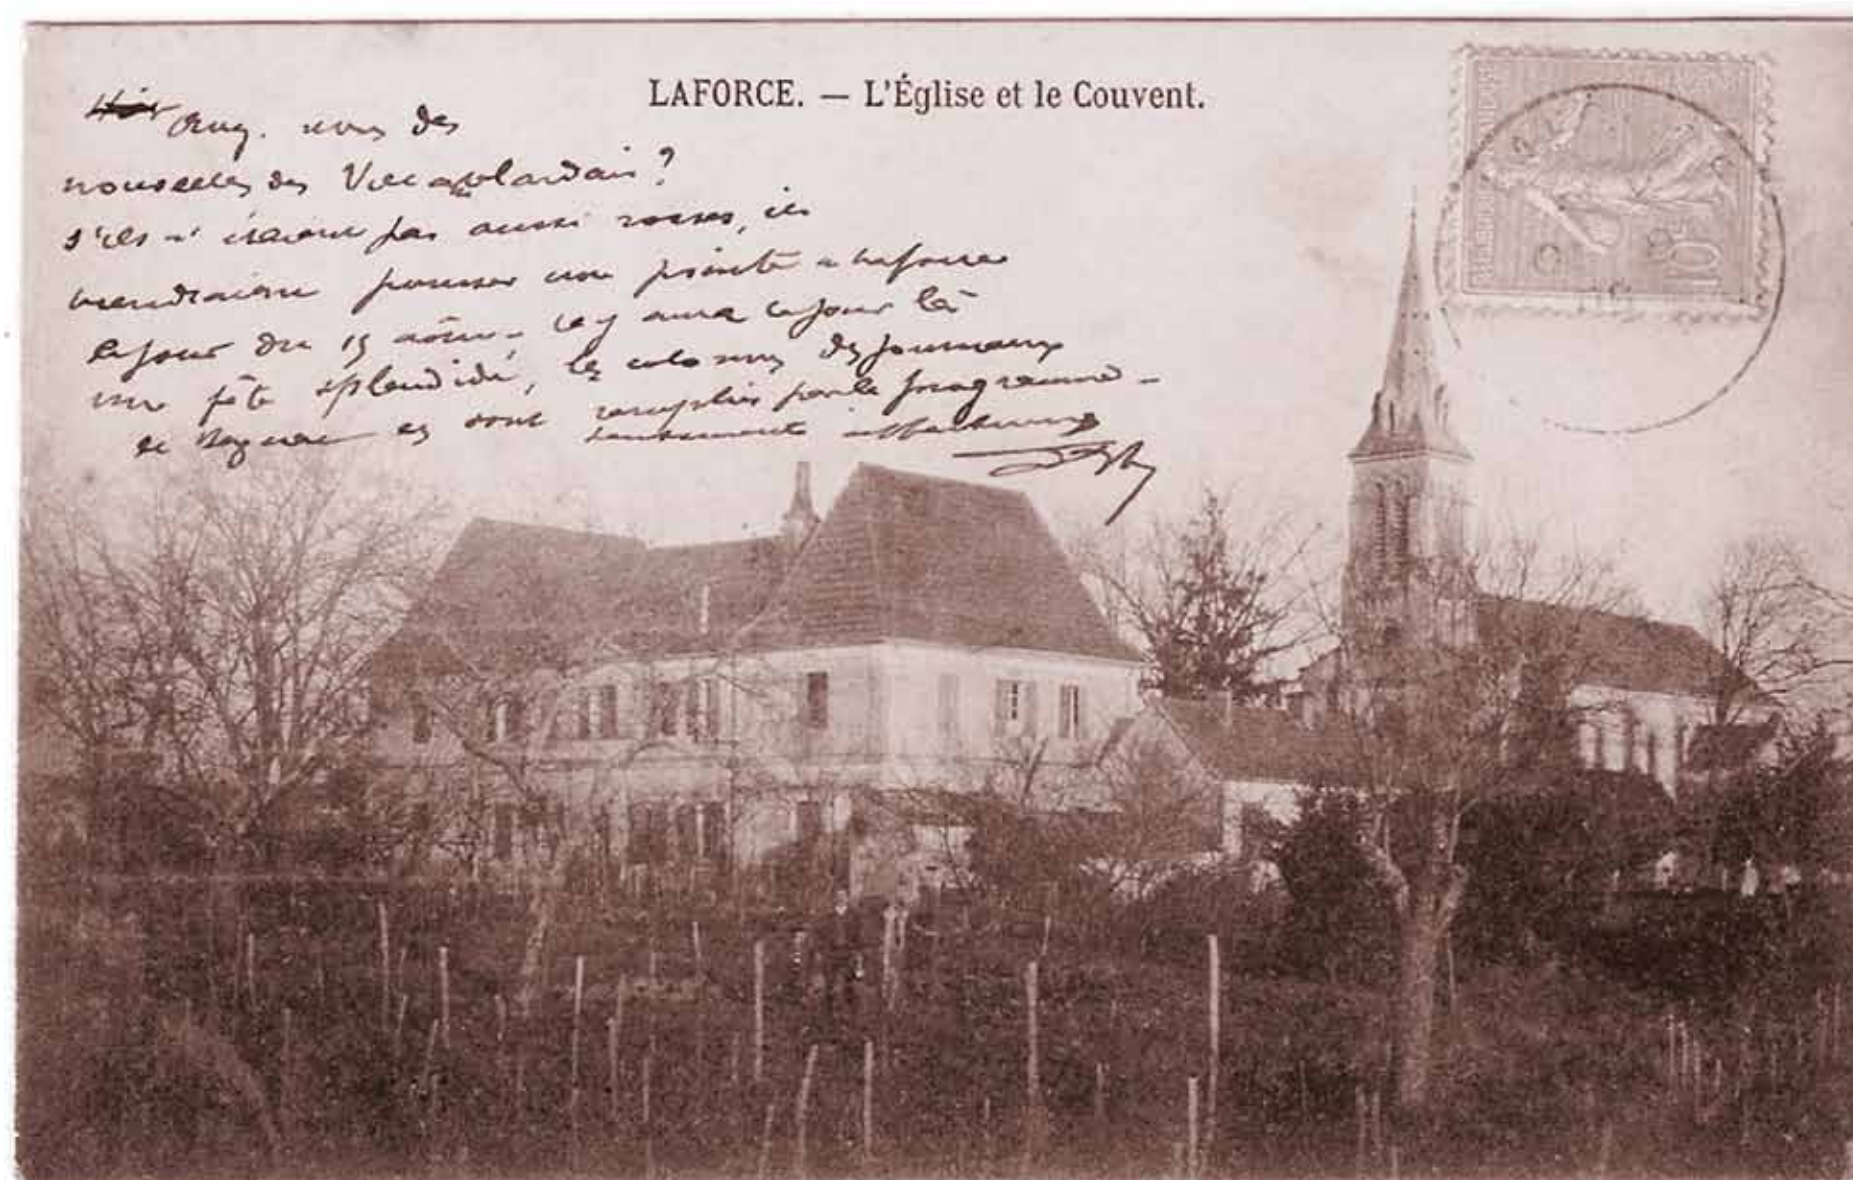 LAFORCE. — L'Église et le Couvent.
des
nouvelles des
s'ils n'étaient pas aussi rosses, ils
viendraient pousser une pointe a Laforce
le jour du 15 aout. il y aura ce jour là
une fête splendide, les colonnes des journaux
de Bergerac en sont remplies par le programme -
affectueux
10c